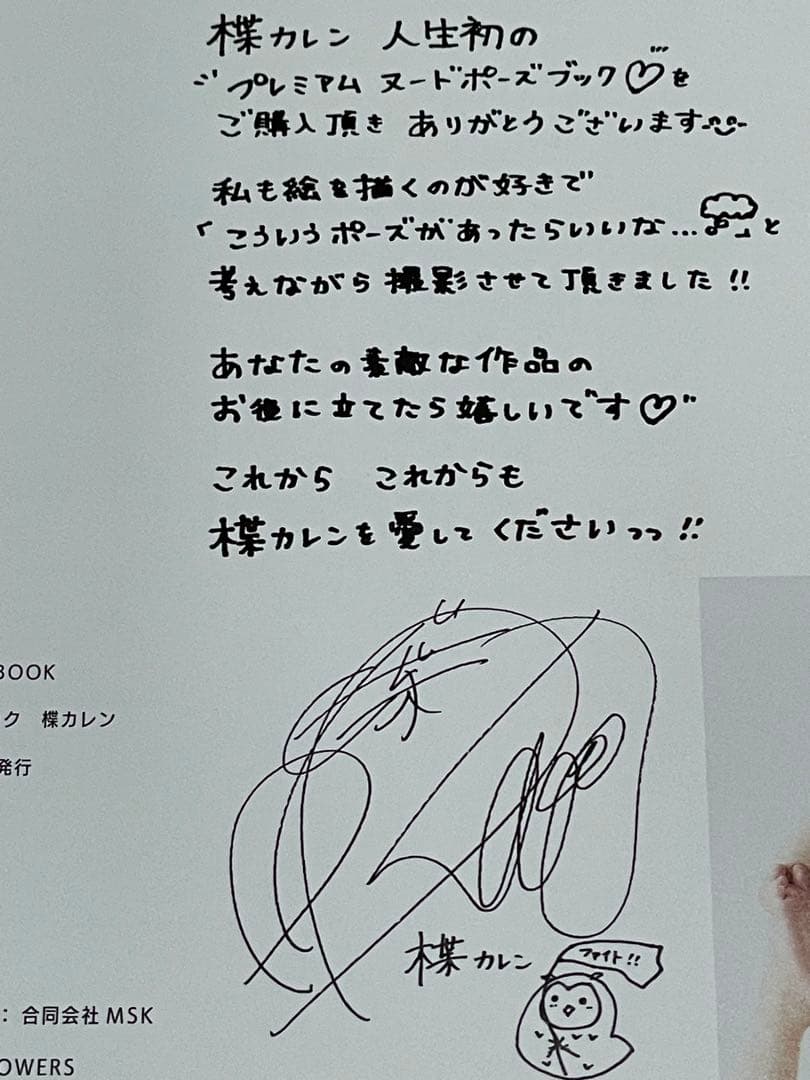 楪カレン 人生初の
プレミアム ヌードポーズブック♡を
ご購入頂き ありがとうございます
私も絵を描くのが好きで
「こういうポーズがあったらいいな...と
考えながら撮影させて頂きました!!
あなたの素敵な作品の
お役に立てたら嬉しいです♡
これから これからも
楪カレンを愛してくださいっっ!!
BOOK
ク 楪カレン
発行
楪カレン
ファイト!!
: 合同会社 MSK
OWERS